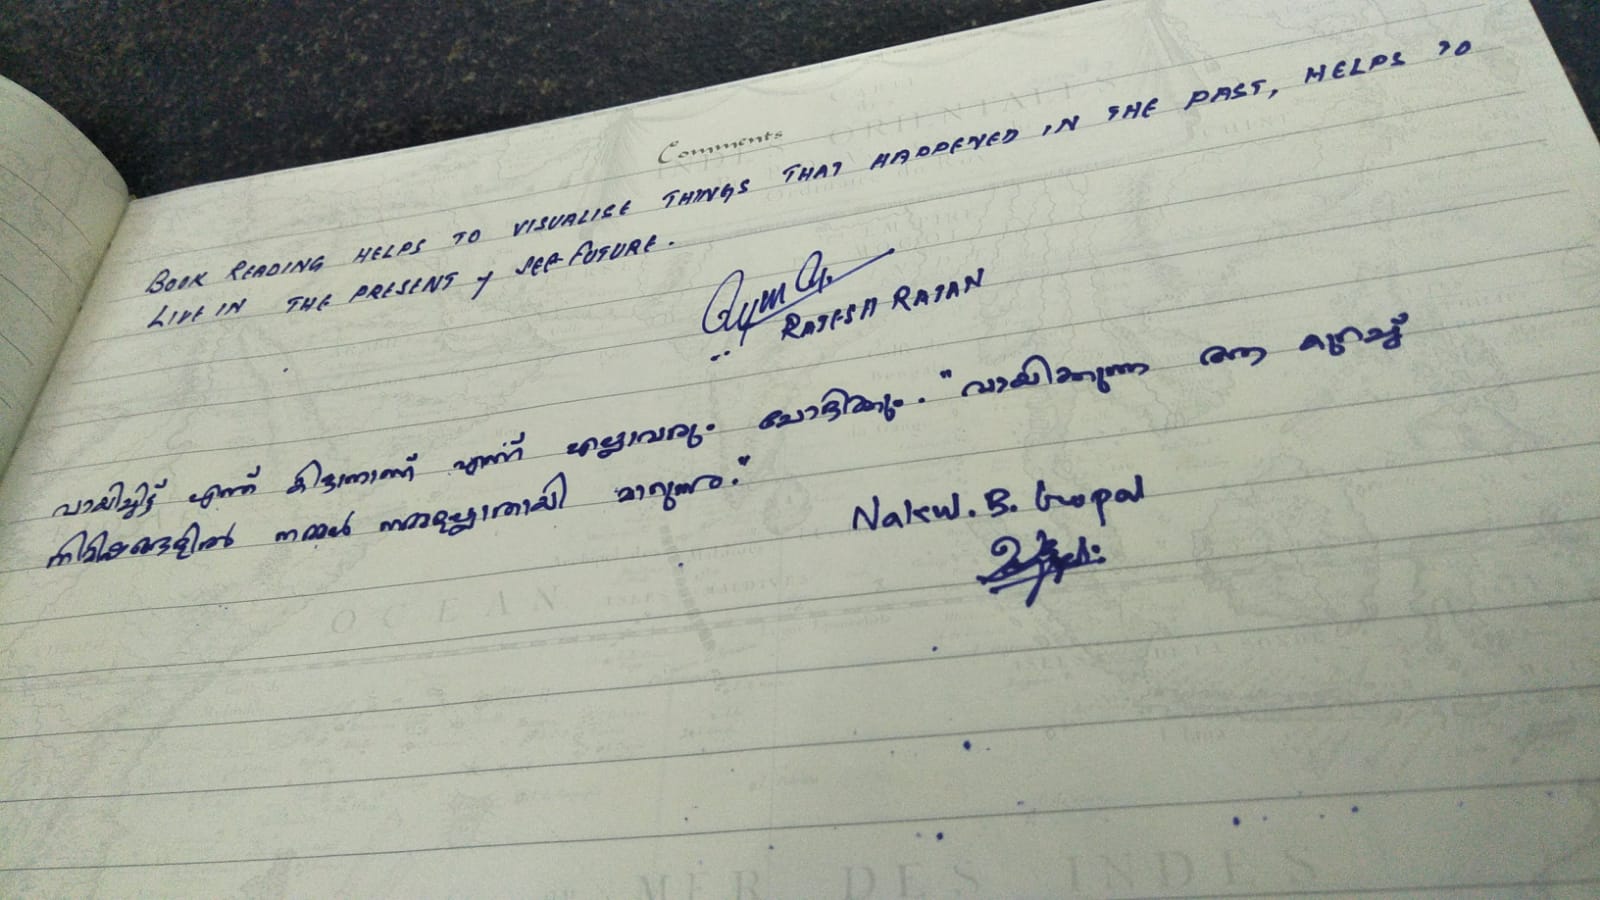 Comments
BOOK READING HELPS TO VISUALISE THINGS THAT HAPPENED IN THE PAST, HELPS TO
LIVE IN THE PRESENT & SEE FUTURE.
RAJESH RAJAN
വായിച്ചിട്ട് എന്ത് കിട്ടാനാണ് എന്ന് എല്ലാവരും ചോദിക്കും. "വായിക്കുന്ന ആ കുറച്ച്
നിമിഷങ്ങളിൽ നമ്മൾ നമ്മളല്ലാതായി മാറുന്നു."
Nakul. B. Gopal
OCEAN
MER DES INDES